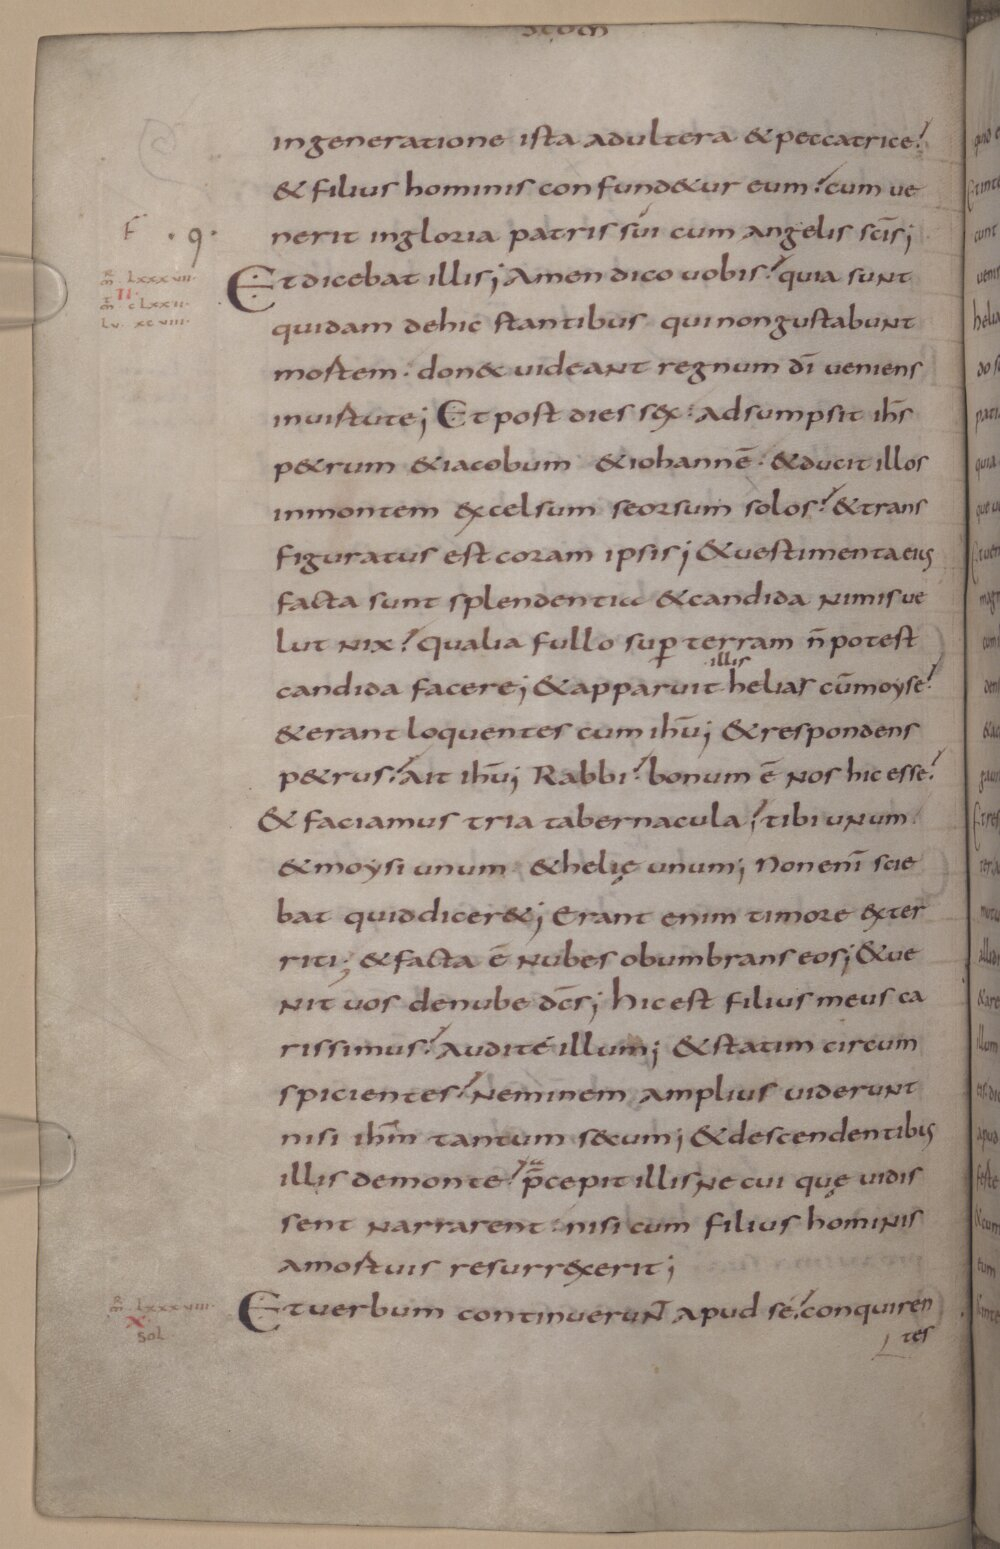 ingeneratione ista adultera & peccatrice
& filius hominis confund&ur eum cum ue
F .9. nerit ingloria patris sui cum angelis scīs;
m̄ Lxxxvii
II
m̄ cLxxii
Lu. xcviii
Et dicebat illis; Amen dico uobis quia sunt
quidam dehic stantibus qui non gustabunt
mortem. don& uideant regnum dī ueniens
inuirtute; Et post dies sex. Adsumpsit ihs̄
p&rum &iacobum &iohannē. &ducit illos
inmontem excelsum seorsum solos &trans
figuratus est coram ipsis; &uestimenta eius
facta sunt splendentia &candida nimis ue
lut nix qualia fullo sup̄ terram n̄ potest
illis
candida facere; &apparuit helias cū moyse
&erant loquentes cum ihū; &respondens
p&rus. Ait ihū; Rabbi bonum ē nos hic esse
& faciamus tria tabernacula, tibi unum
&moysi unum &helię unum; Non enī scie
bat quid dicer&; Erant enim timore exter
riti; &facta ē nubes obumbrans eos; &ue
nit uos denube dc̄s; hic est filius meus ca
rissimus. Audite illum; &statim circum
spicientes Neminem amplius uiderunt
nisi ihm̄ tantum s&cum; &descendentibus
illis demonte p̄cepit illis Ne cui quę uidis
sent narrarent. nisi cum filius hominis
amortuis resurrexerit;
m̄ Lxxxviii
X
Sol
Et uerbum continuerunt apud se conquiren
tes